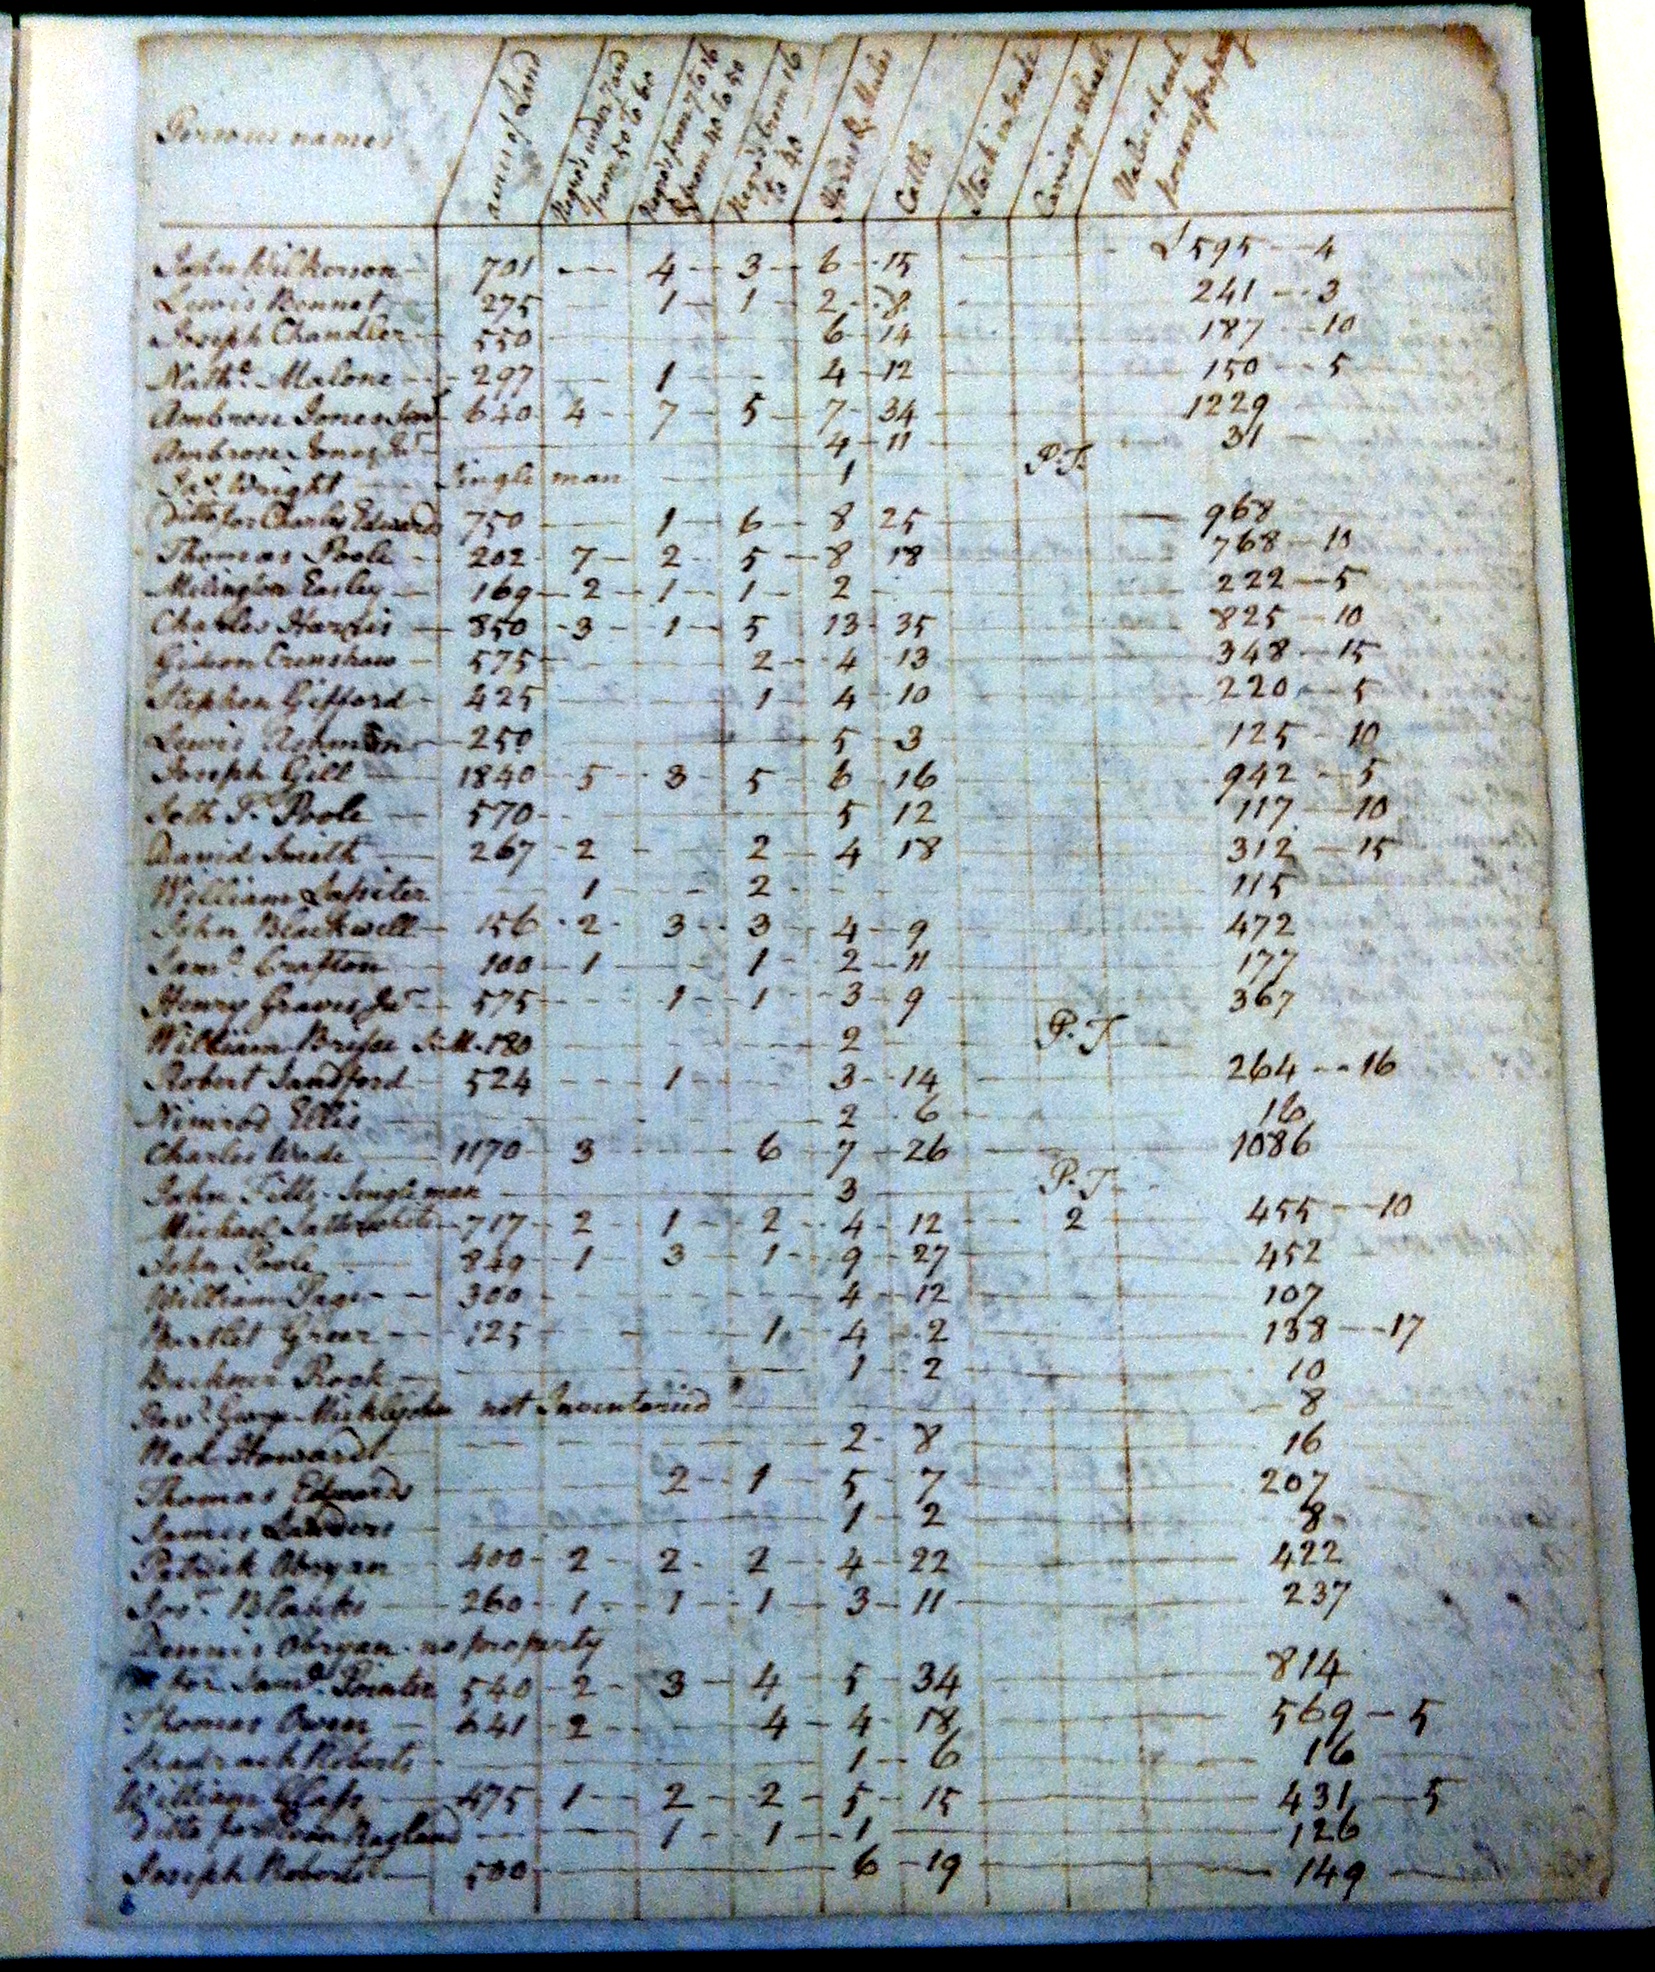 Persons names acres of Land Negro's under 7 and from 50 to 60 Negro's from 7 to 16 & from 40 to 50 Negro's from 16 to 40 Horses & Mules Cattle Stock in trade Carriage Wheels Value of each persons property
John Wilkerson 701 4 3 6 15 £595 4
Lewis Bennet 275 1 1 2 8 241 3
Joseph Chandler 550 6 14 187 10
Nathl. Malone 297 1 4 12 150 5
Ambrose Jones Senr 640 4 7 5 7 34 1229
Ambrose Jones Jr 4 11 31
Jas. Wright Single man 1 P.T.
Ditto for Charles Edwards 750 1 6 8 25 968
Thomas Poole 202 7 2 5 8 18 768 10
Millington Easley 169 2 1 1 2 222 5
Charles Harris 850 3 1 5 13 35 825 10
Gideon Crenshaw 575 2 4 13 348 15
Stephen Gifford 425 1 4 10 220 5
Lewis 250 5 3 125 10
Joseph Gill 1840 5 3 5 6 16 942 5
Seth T. Poole 570 5 12 117 10
David Smith 267 2 2 4 18 312 15
William Lasiter 1 2 115
John Blackwell 156 2 3 3 4 9 472
Saml. Crafton 100 1 1 2 11 177
Henry Graves Jr 575 1 1 3 9 367
William 180 2 P.T
Robert Sandford 524 1 3 14 264 16
Nimrod Ellis 2 6 16
Charles Wade 1170 3 6 7 26 1086
John Tilly Single man 3 P.T
Michael Satterwhite 717 2 1 2 4 12 2 455 10
John Poole 849 1 3 1 9 27 452
William Page 300 4 12 107
Bartlet Greer 125 1 4 2 138 17
Buckner Rook 1 2 10
Revd. George Micklejohn not Inventoried 8
Wad Howard 2 8 16
Thomas Edwards 2 1 5 7 207
James Landers 1 2 8
Patrick Obryan 400 2 2 2 4 22 422
Blanks 260 1 1 1 3 11 237
Dennis Obryan no property
for Saml. Pointer 540 2 3 4 5 34 814
Thomas Owen 641 2 4 4 18 569 5
Shadrach Roberts 1 6 16
William Glass 475 1 2 2 5 15 431 5
Ditto for Evan Ragland 1 1 1 126
Joseph Roberts 500 6 19 149